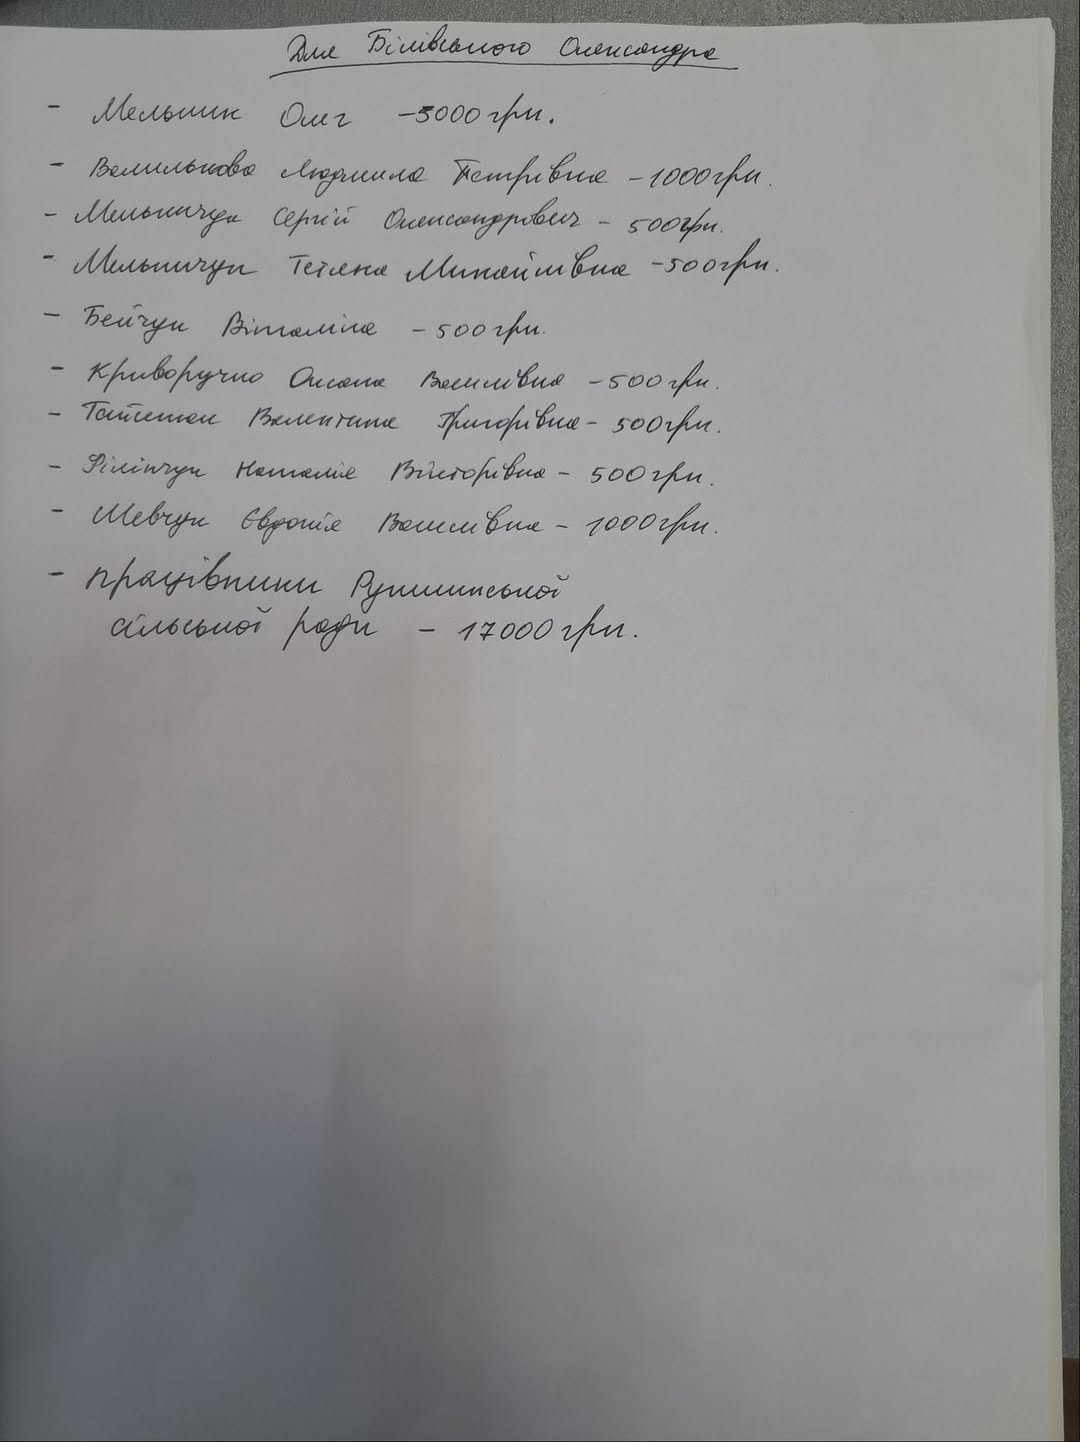 Для Білівського Олександра
- Мельник Олег - 5000 грн.
- Василькова Людмила Петрівна - 1000 грн.
- Мельничук Сергій Олександрович - 500 грн.
- Мельничук Тетяна Михайлівна - 500 грн.
- Бейчук Віталіна - 500 грн.
- Криворучко Оксана Василівна - 500 грн.
- Валентина Григорівна - 500 грн.
- Філіпчук Наталія Вікторівна - 500 грн.
- Шевчук Євдокія Василівна - 1000 грн.
- працівники
сільської ради - 17000 грн.